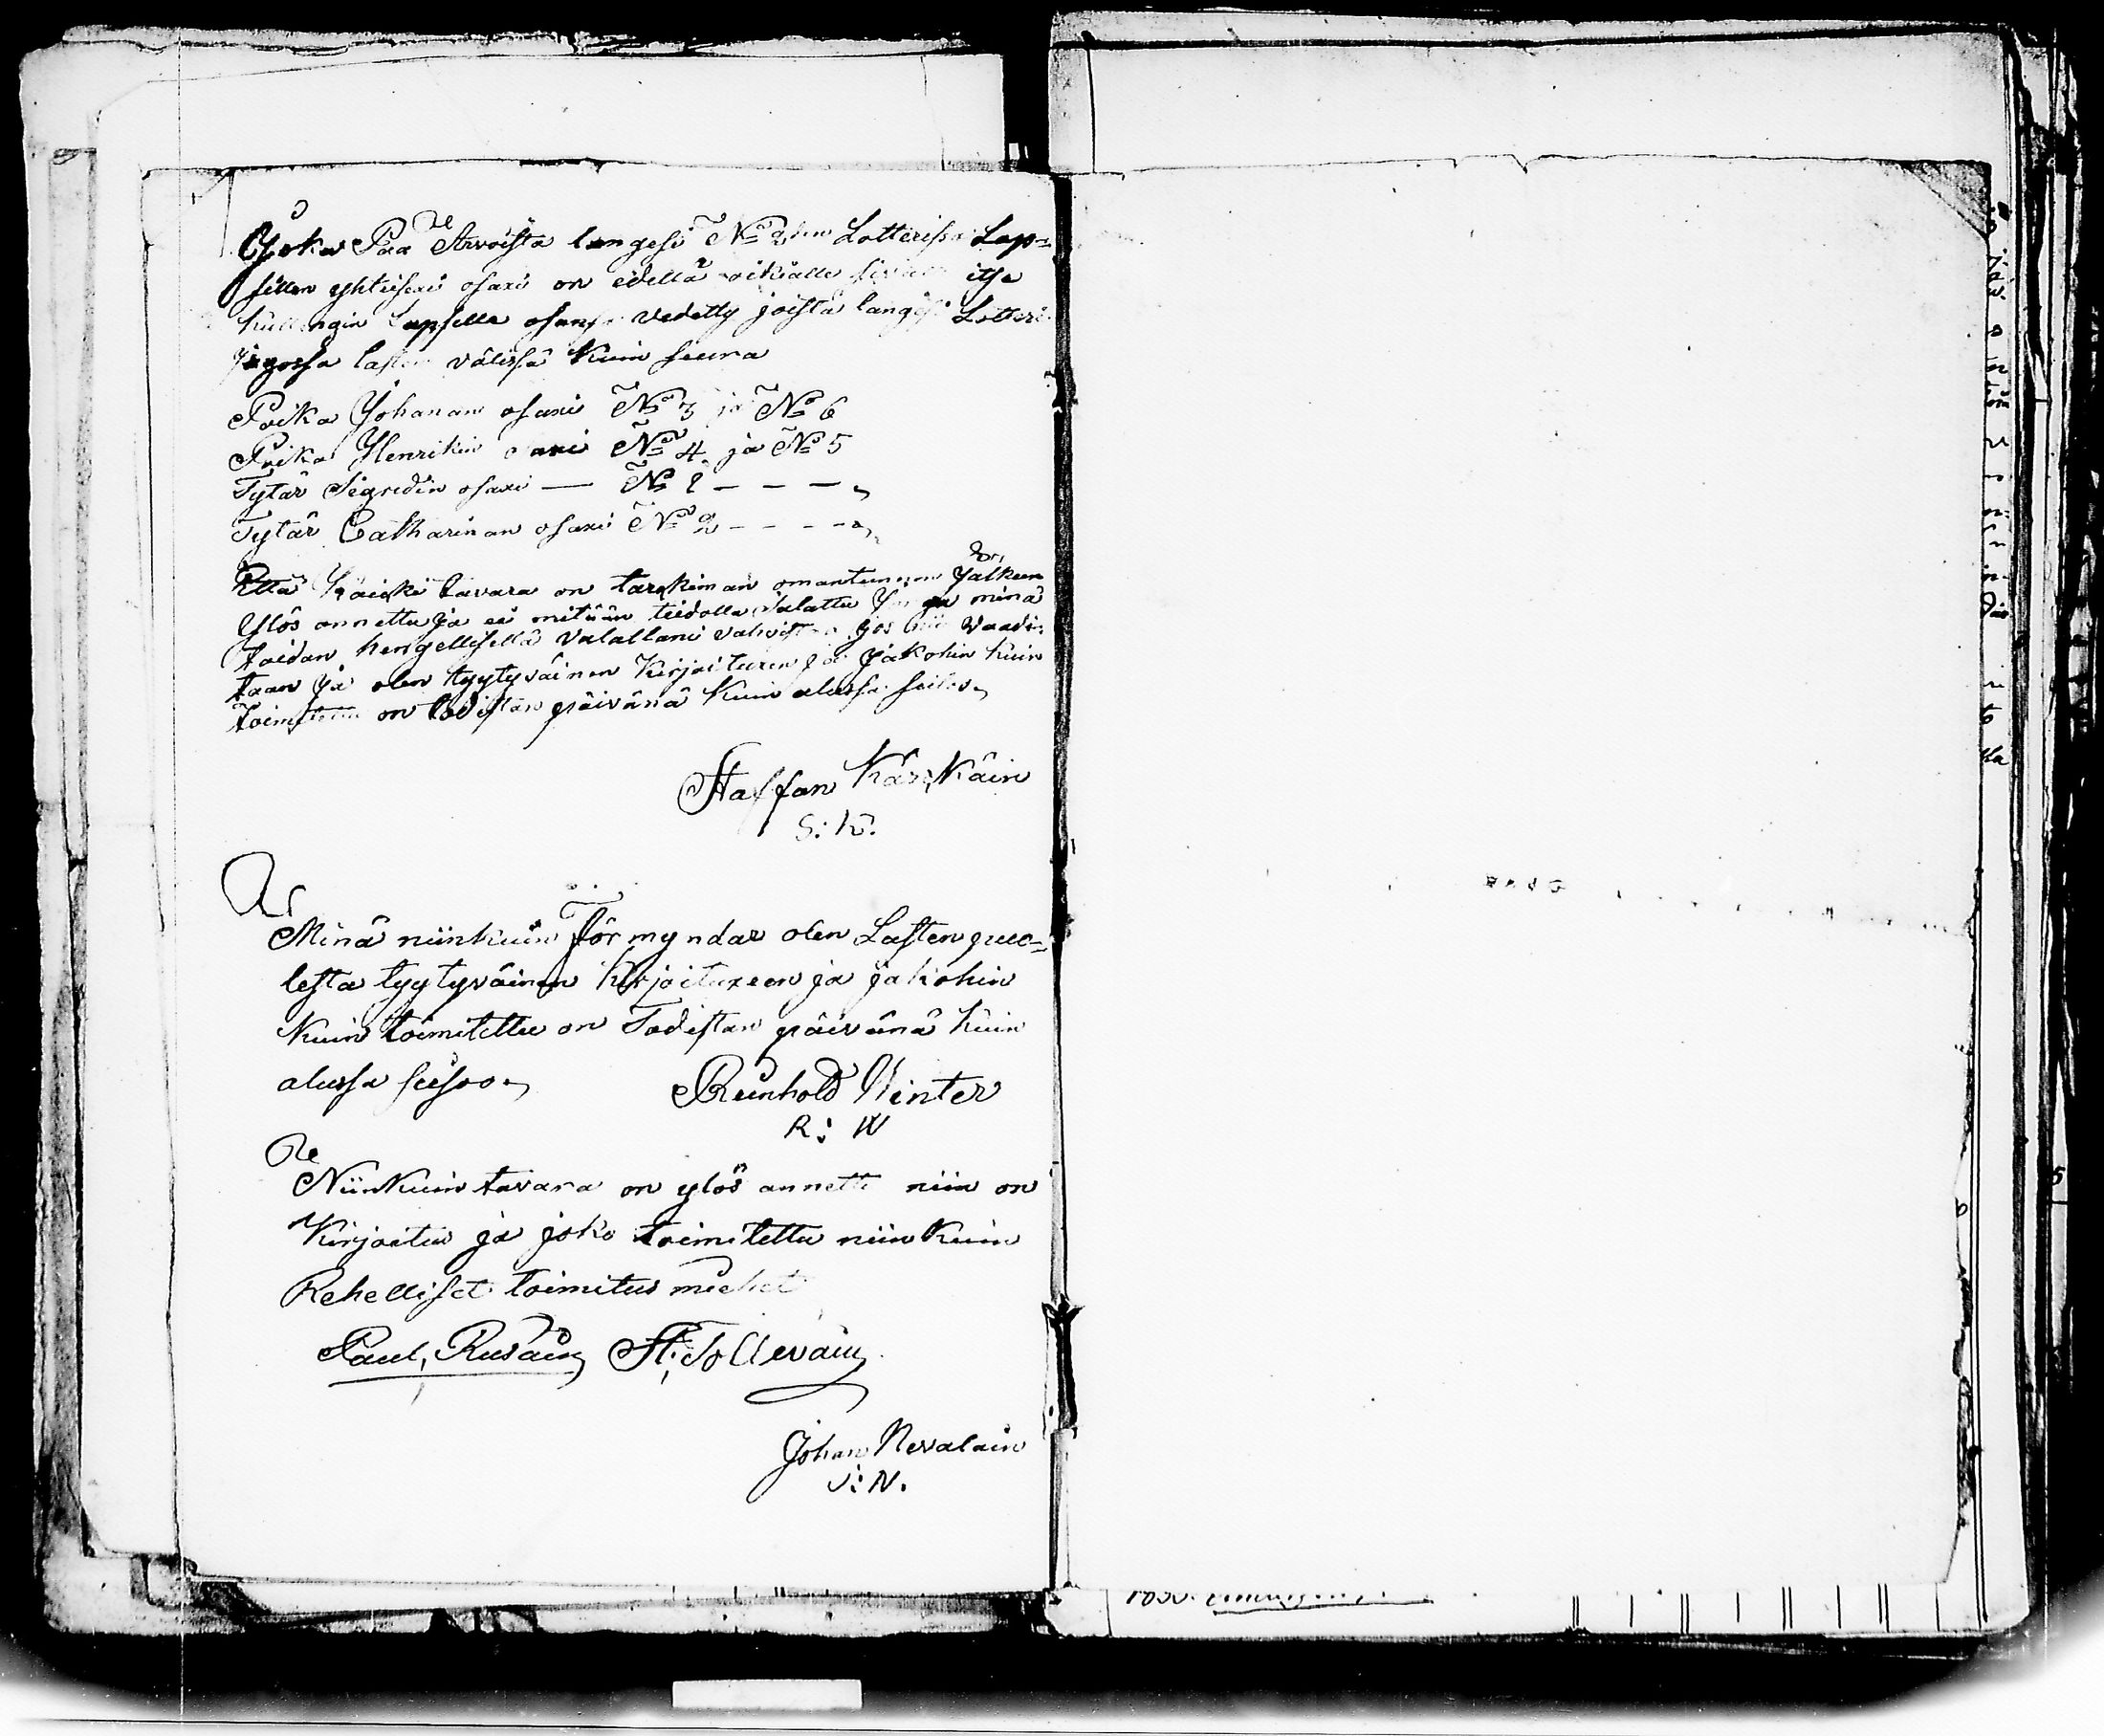 Joka Pää Arvoista langesi No 2hen Lotterissa Lap=
sillen yhteisexi osaxi on edellä oikialla itse
kullengin Lapselle osansa vedetty joista langesi Lotteri
jagossa lasten välissä kuin seura
Poika Johanan osaxi No 3 ja No 6
Poika Henrikin osaxi No 4 ja No 5
Tytär Sigredin osaxi — No 1 - - - „
Tytär Catharinan osaxi No 2 - - - - „
Että Kaicki tavara on tarckiman omantunnon Jälkeen
Ylös annettu ja ei mitään tiedolla salattu minä
taidan hengellisellä valallani vahvistaa jos niin vaadi=
taan Ja olen tyytyväinen Kirjoituxen ja Jakohin kuin
toimitettu on todistan päivänä kuin alussa seisoo
Staffan Kärkkäin
S: K:
Minä niinkuin Förmyndar olen Lasten puo=
lesta tyytyväinen kirjoituxeen ja jakohin
kuin toimitettu on Todistan päivänä kuin
alussa seisoo
Reinhold Winter
R: W
Niinkuin tavara on ylös annettu niin on
Kirjoitus ja jako toimitettu niinkuin
Rehelliset toimitus miehet
Paul, Rusain St: Tollevain
Johan Nevalain
J: N.